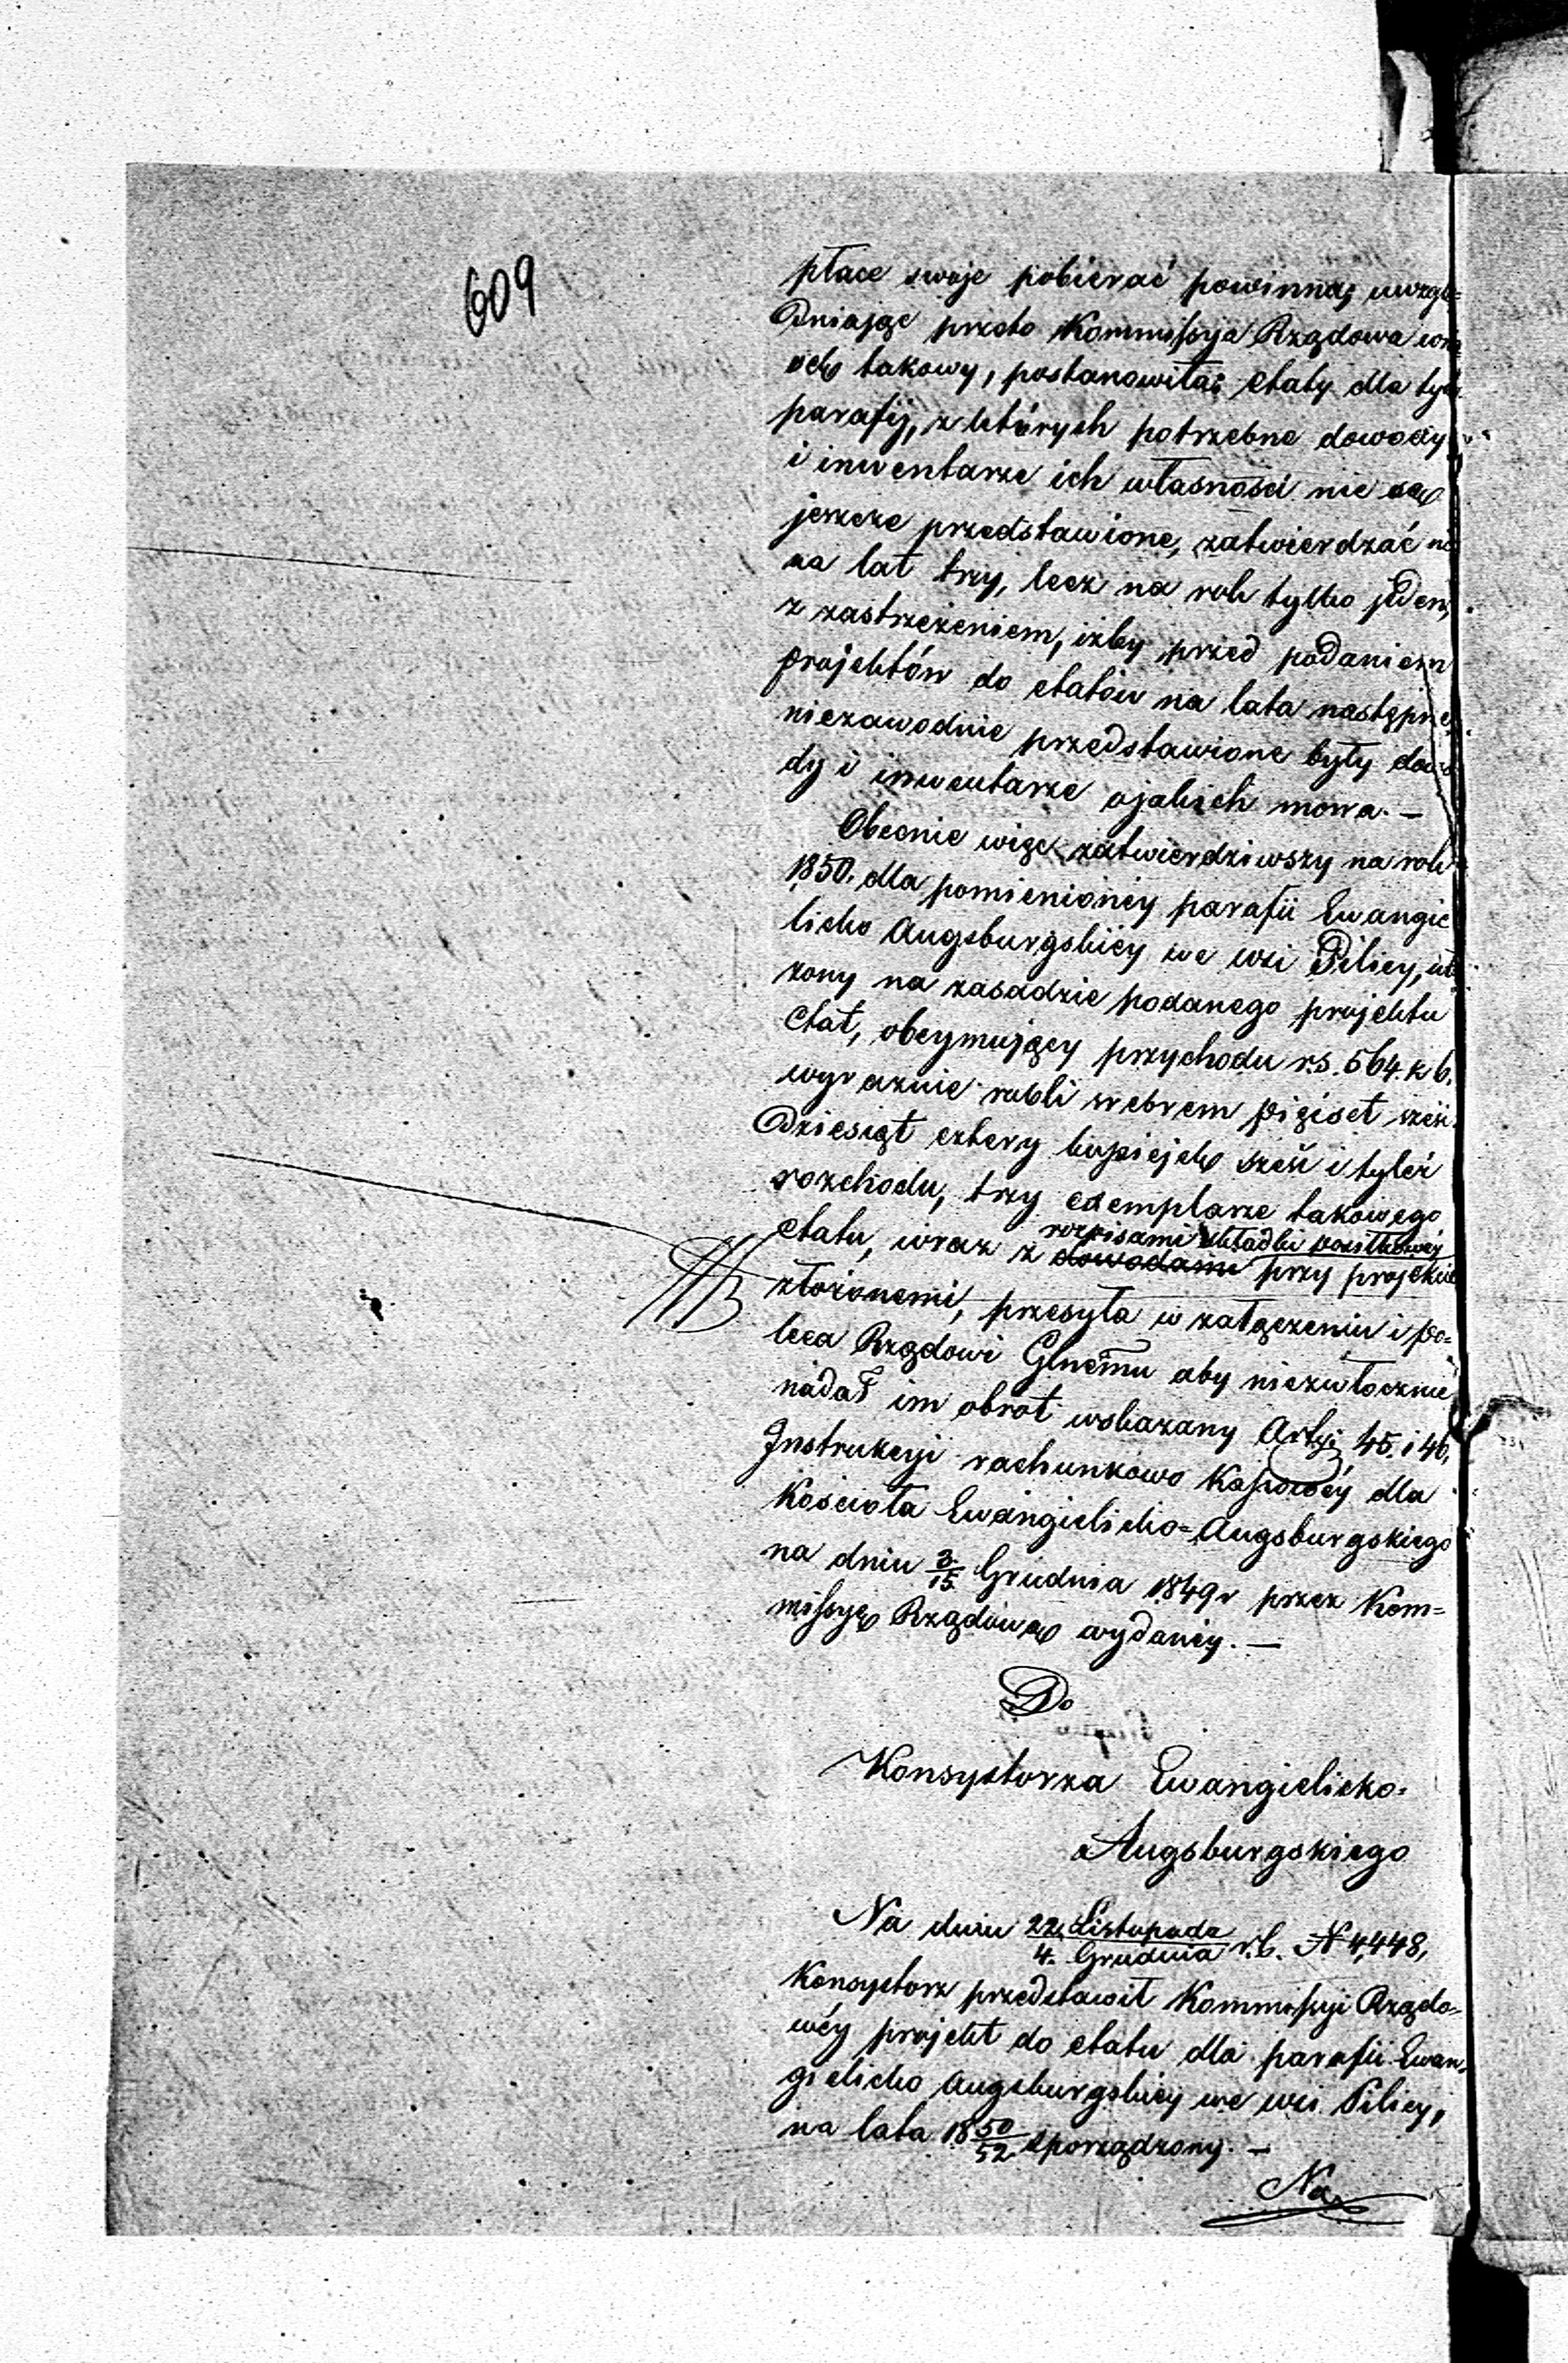 609
płace swoje pobierać powinna; uwzglę=
dniając przeto Kommissya Rządowa wnio
sek takowy, postanowiła: etaty dla tych
parafij, z których potrzebne dowody
i inwentarze ich własności nie są
jeszcze przedstawione, zatwierdzać nie
na lat trzy, lecz na rok tylko jeden,
z zastrzeżeniem, iżby przed podaniem
projektów do etatów na lata następne,
niezawodnie przedstawione były dowo
dy i inwentarze o jakich mowa. —
Obecnie więc zatwierdziwszy na rok
1850. dla pomienionéy parafii Ewangie
licko Augsburgskiéy we wsi Pilicy, uło
żony na zasadzie podanego projektu
etat, obeymujący przychodu r.s. 564. k 6.
wyraźnie rubli srebrem pięćset sześć
dziesiąt cztery kopiejek sześć i tyleż
rozchodu, trzy exemplarze takowego
etatu, wraz z dowodami przy projekcie
rozpisami składki
złożonemi, przesyła w załączeniu i po=
leca Rządowi Glnemu aby niezwłocznie
nadał im obrót wskazany Arty: 45. i 46,
Instrukcyi rachunkowo Kassowéy dla
Kościoła Ewangielicko=Augsburgskiego
na dniu 3/15 Grudnia 1849 r przez Kom=
missyę Rządową wydanéy. —
Do
Konsystorza Ewangielicko=
Augsburgskiego
Na dniu 22. Listopada / 4. Grudnia r.b. N 4,448,
Konsystorz przedstawił Kommissyi Rządo=
wéy projekt do etatu dla parafii Ewan=
gielicko Augsburgskiéy we wsi Pilicy,
na lata 18 50/52 sporządzony. —
Na